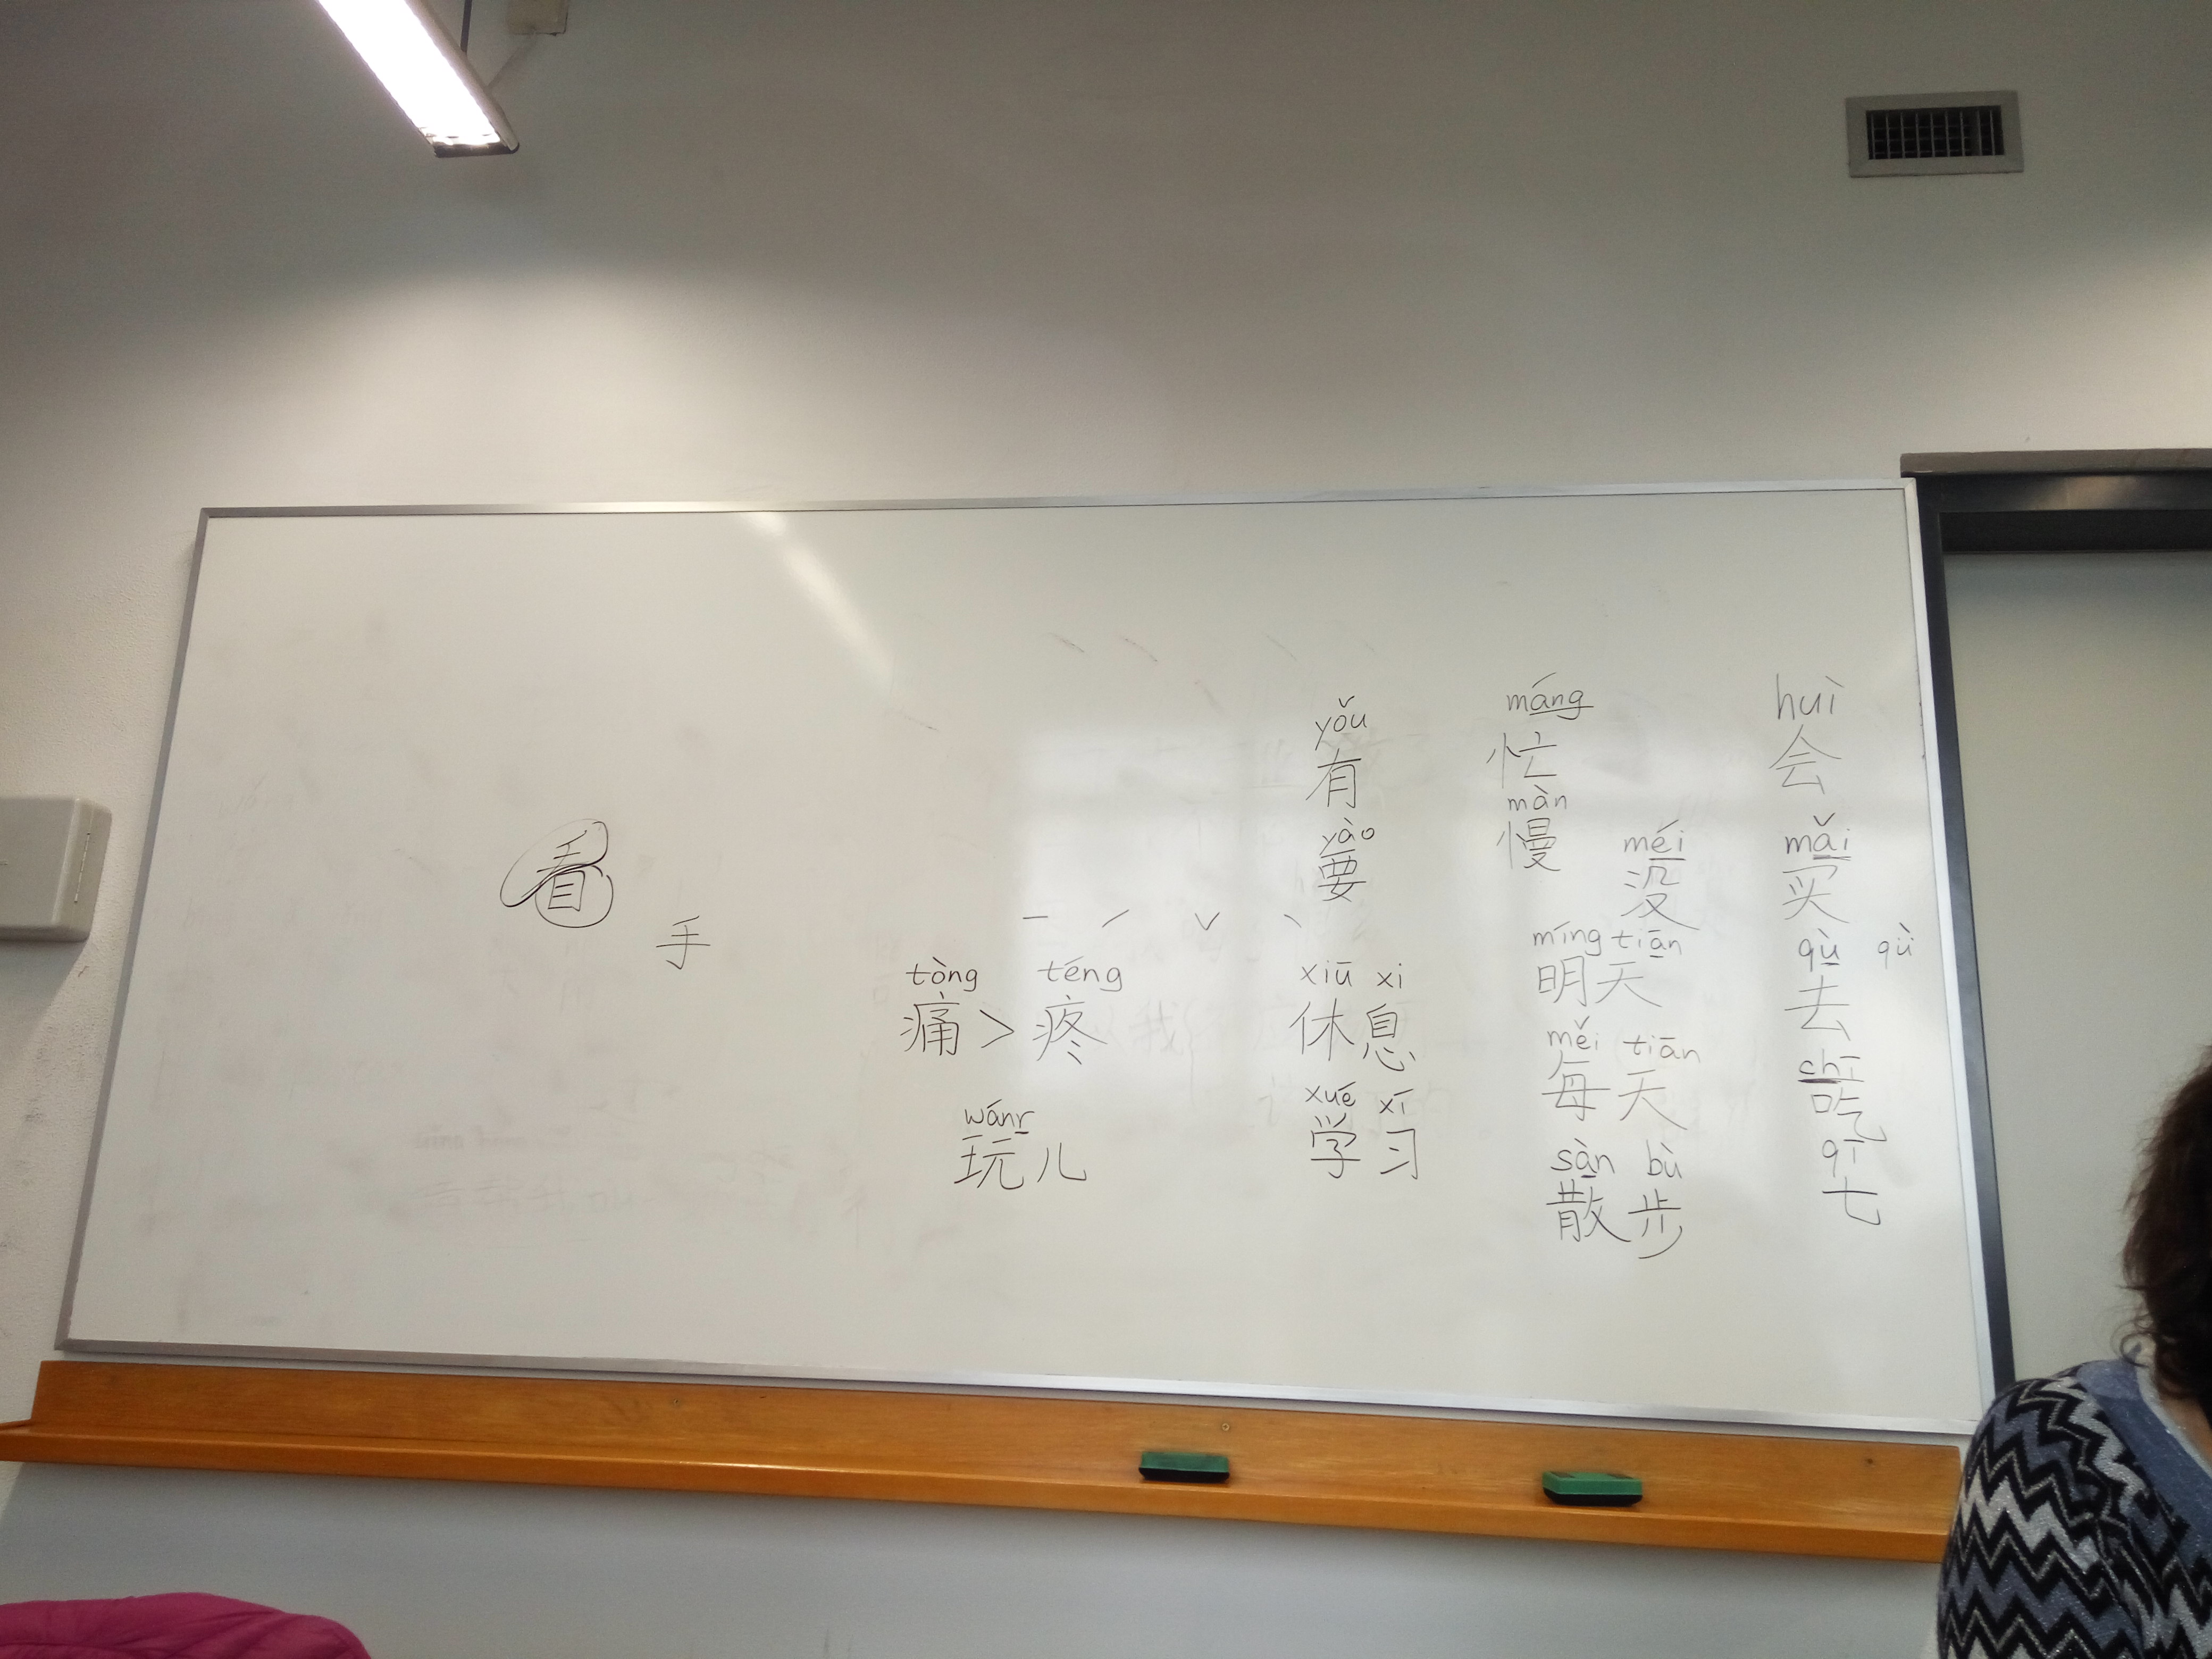 看
手
ˉ ˊ ˇ ˋ
tòng téng
痛 > 疼
wánr
玩儿
yǒu
有
yào
要
xiū xi
休息
xué xí
学习
máng
忙
màn
慢
méi
没
míng tiān
明天
měi tiān
每天
sàn bù
散步
huì
会
mǎi
买
qù qǜ
去
chī
吃
qī
七